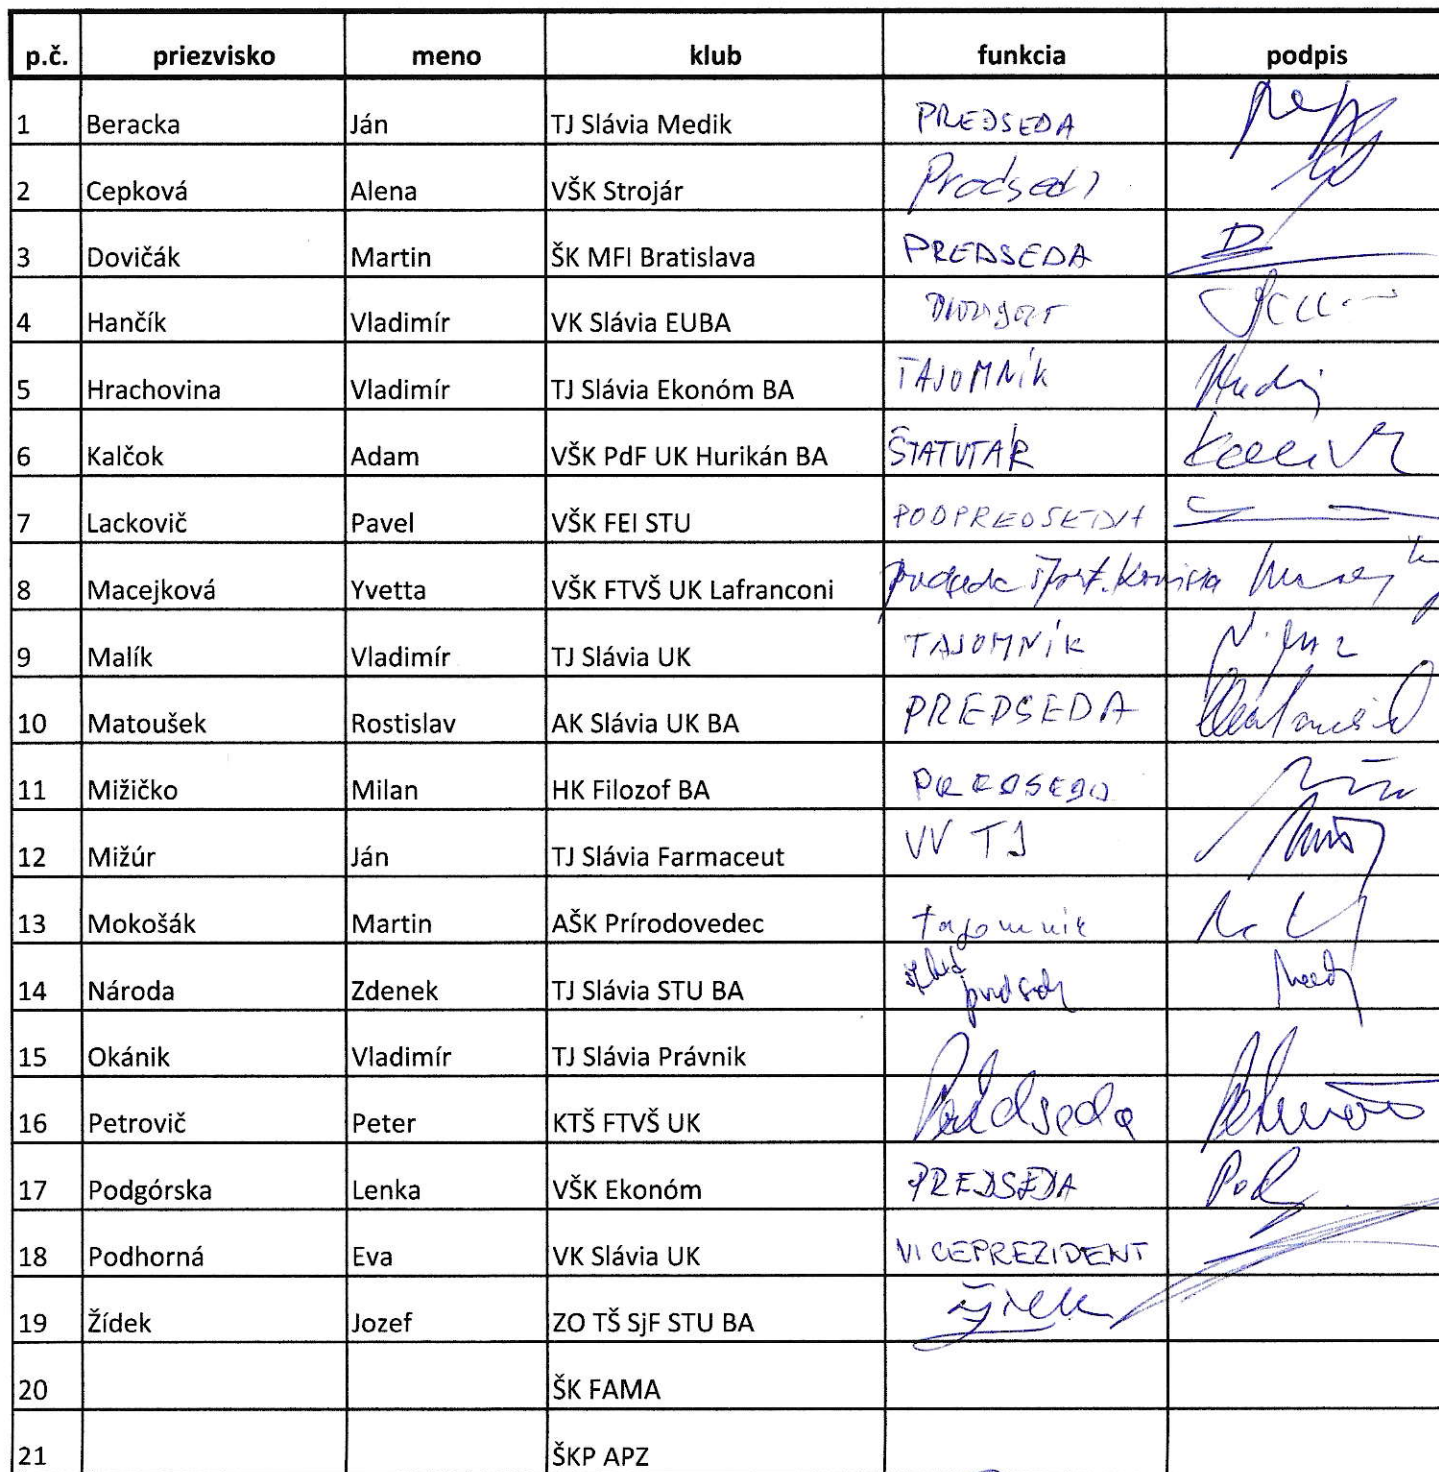 p.č. priezvisko meno klub funkcia podpis
1 Beracka Ján TJ Slávia Medik PREDSEDA
2 Cepková Alena VŠK Strojár
3 Dovičák Martin ŠK MFI Bratislava PREDSEDA
4 Hančík Vladimír VK Slávia EUBA
5 Hrachovina Vladimír TJ Slávia Ekonóm BA TAJOMNÍK
6 Kalčok Adam VŠK PdF UK Hurikán BA ŠTATUTÁR
7 Lackovič Pavel VŠK FEI STU PODPREDSEDA
8 Macejková Yvetta VŠK FTVŠ UK Lafranconi
9 Malík Vladimír TJ Slávia UK TAJOMNÍK
10 Matoušek Rostislav AK Slávia UK BA PREDSEDA
11 Mižičko Milan HK Filozof BA PREDSEDA
12 Mižúr Ján TJ Slávia Farmaceut VV TJ
13 Mokošák Martin AŠK Prírodovedec tajomnik
14 Národa Zdenek TJ Slávia STU BA
15 Okánik Vladimír TJ Slávia Právnik
16 Petrovič Peter KTŠ FTVŠ UK Predseda
17 Podgórska Lenka VŠK Ekonóm PREDSEDA
18 Podhorná Eva VK Slávia UK VICEPREZIDENT
19 Žídek Jozef ZO TŠ SjF STU BA
20 ŠK FAMA
21 ŠKP APZ